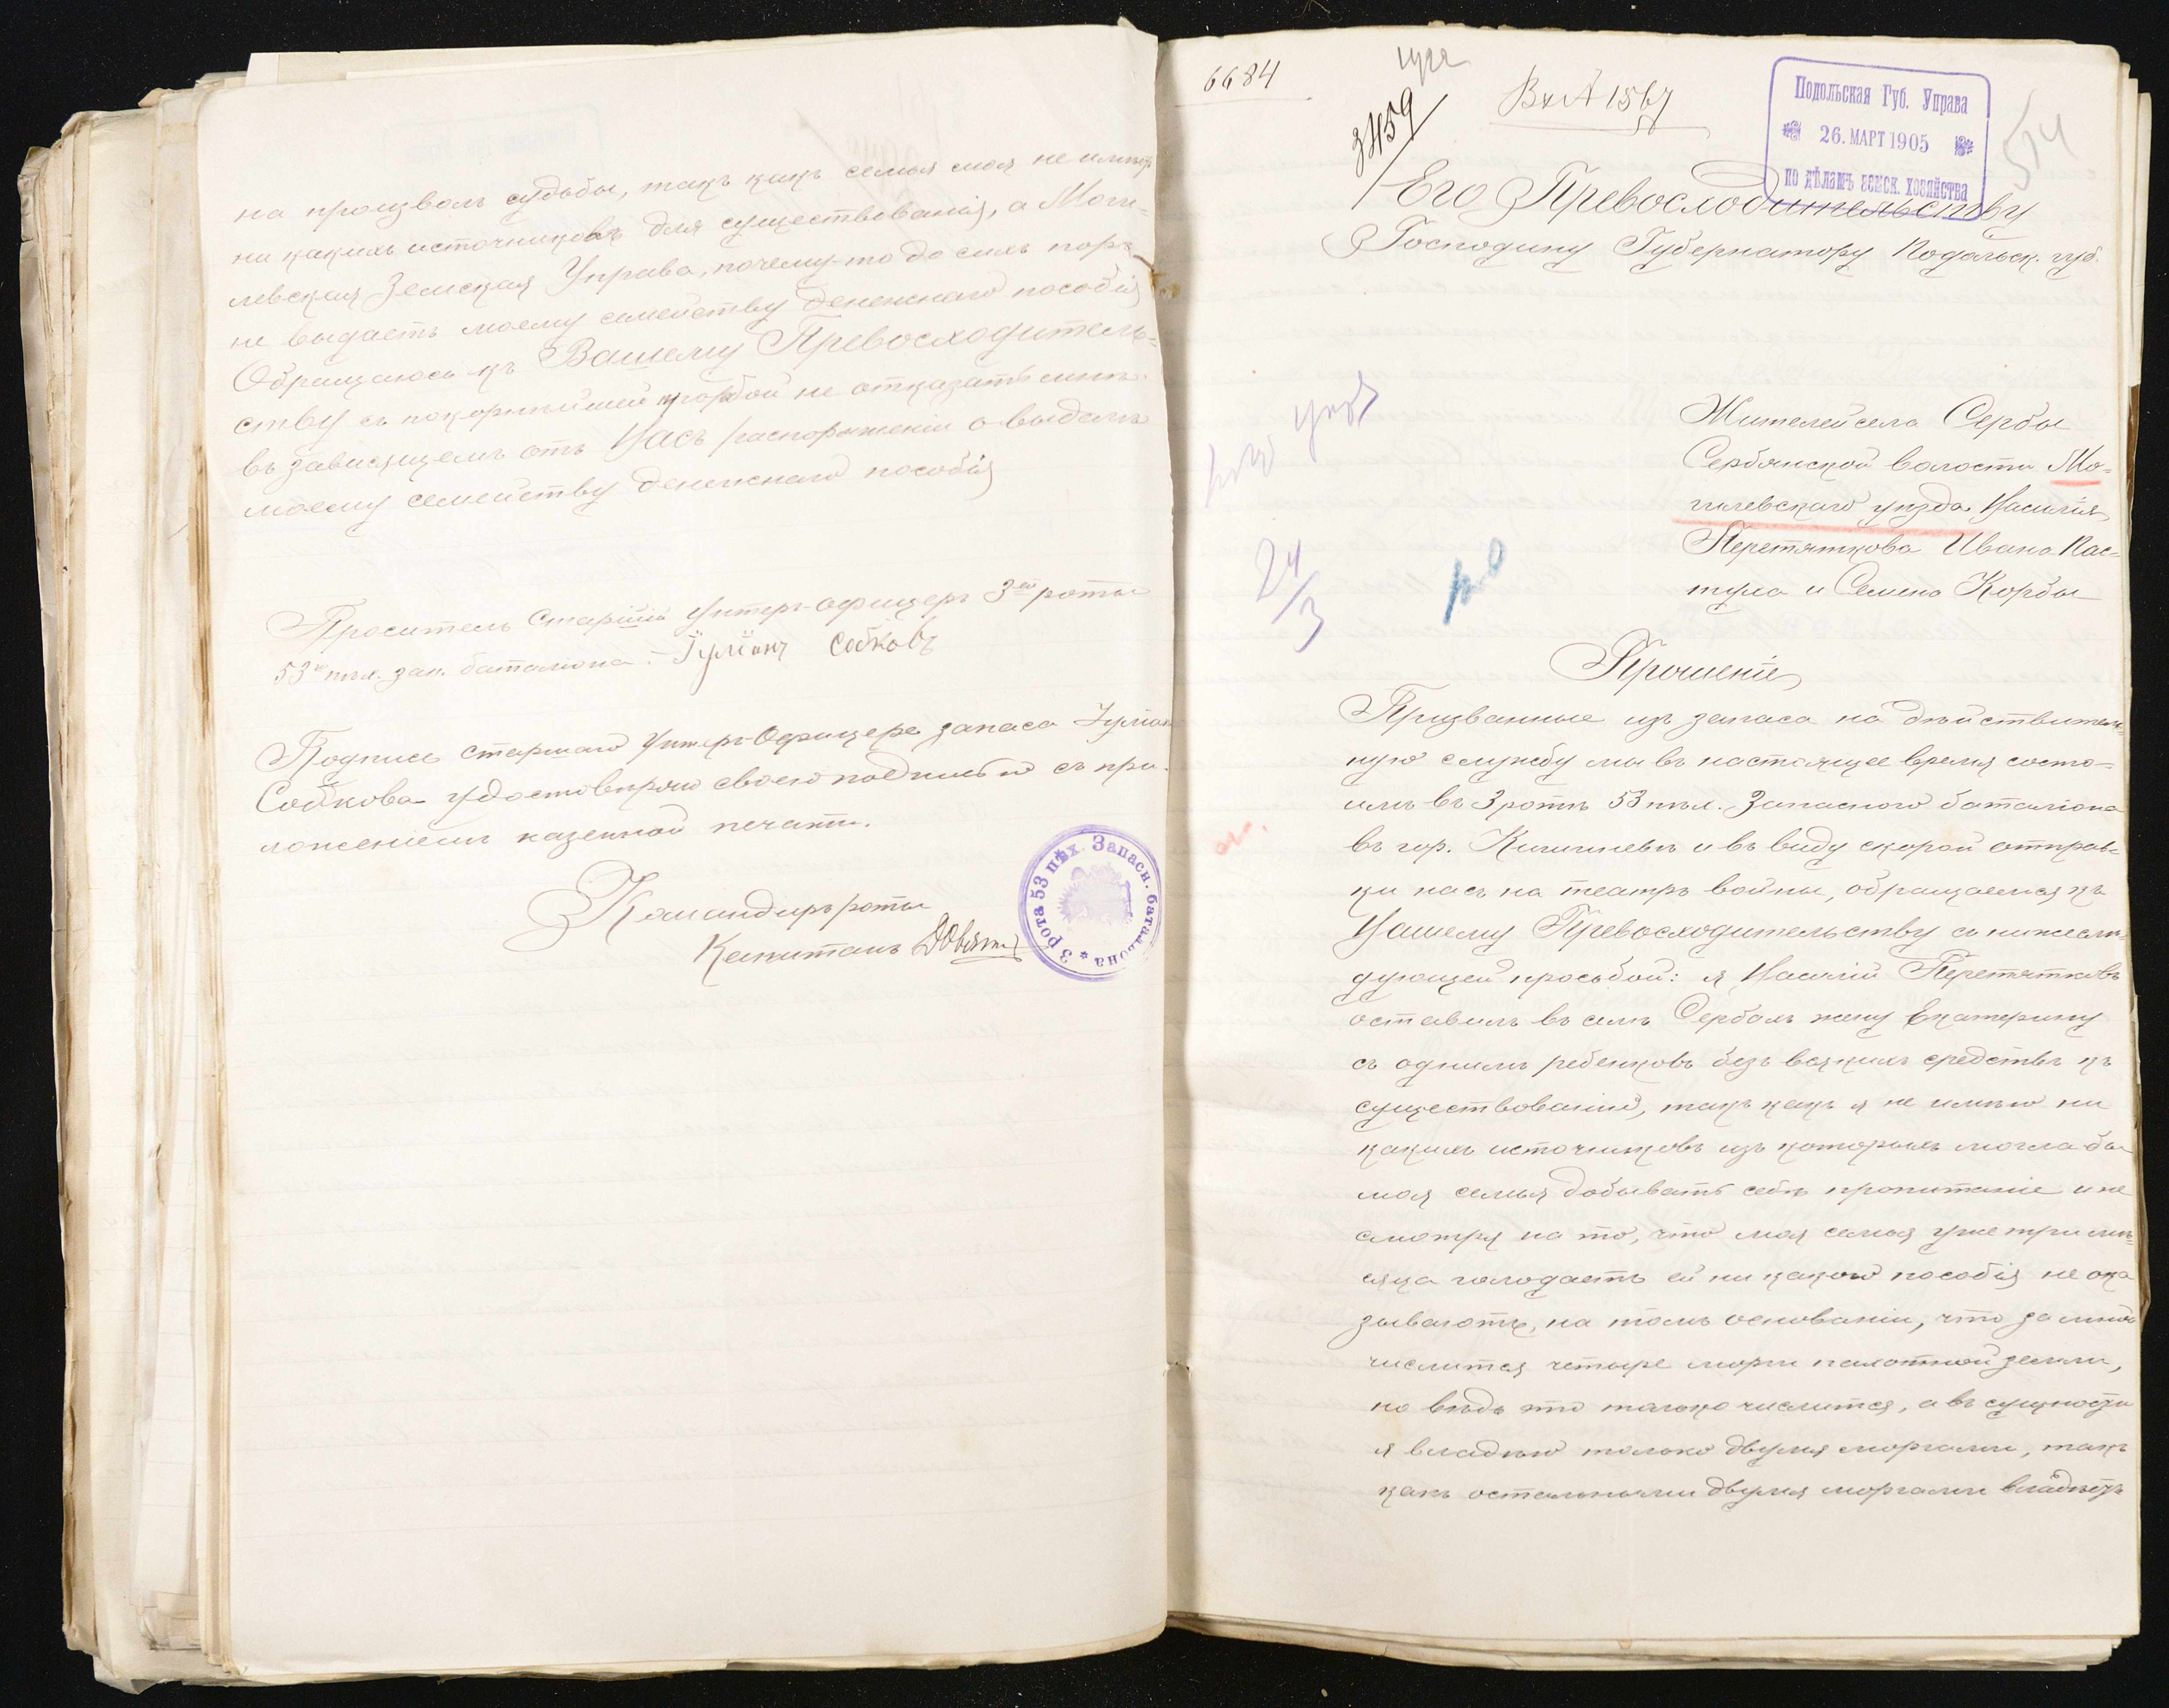 на произволъ судьбы, такъ какъ семья моя не имѣетъ
ни какихъ источниковъ для существованія, а Моги-
левская Земская Управа, почему-то до сихъ поръ
не выдаетъ моему семейству денежнаго пособія
Обращаюсь къ Вашему Превосходитель-
ству съ покорнѣйшей просьбой не отказать
въ зависящемъ отъ Васъ распоряженіи о выдачѣ
моему семейству денежнаго пособія
Проситель Старшій Унтеръ-офицеръ 3ей роты
53го пѣх. зап. баталіона. Іуліанъ Собковъ
Подпись старшаго Унтеръ-Офицера запаса Іуліана
Собкова удостовѣряю своею подписью съ при-
ложеніемъ казенной печати.
Командиръ роты
Капитанъ
3 рота 53 пѣх. Запасн. баталіона *
6684
3459
Вх № 1567
Подольская Губ. Управа
26. МАРТ 1905
по дѣламъ земск. хозяйства
514
Его Превосходительству
Господину Губернатору Подольск. губ.
24/3
Жителей села Сербы
Сербянской волости Мо-
гилевскаго уѣзда Василія
Перетяткова Ивана Пас-
тула и Семена Корбы
Прошеніе
Призванные изъ запаса на дѣйствитель-
ную службу мы въ настоящее время состо-
имъ въ 3 ротѣ 53 пѣх. Запаснаго баталіона
въ гор. Кишиневѣ и въ виду скорой отправ-
ки насъ на театръ войны, обращаемся къ
Вашему Превосходительству съ нижеслѣ-
дующей просьбой: я Василій Перетятковъ
оставилъ въ селѣ Сербахъ жену Екатерину
съ однимъ ребенковъ безъ всякихъ средствъ къ
существованію, такъ какъ я не имѣю ни
какихъ источниковъ изъ которыхъ могла бы
моя семья добывать себѣ пропитаніе и не
смотря на то, что моя семья уже три мѣ-
сяца голодаетъ ей ни какого пособія не ока
зываютъ, на томъ основаніи, что за мной
числится четыре морги пахотной земли,
но вѣдь это только числится, а въ сущности
я владѣю только двумя моргами, такъ
какъ остальными двумя моргами владѣетъ